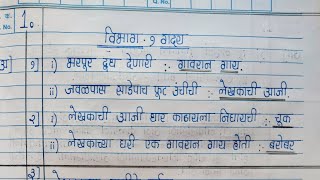 1.
विभाग - १ गद्य
अ] १) i) भरपूर दुध देणारी : गावरान गाय.
ii) जवळपास साडेपाच फूट उंचीची : लेखकाची आजी.
२) i) लेखकाची आजी धार काढायना निघायची : चूक
ii) लेखकाच्या घरी एक गावरान गाय होती : बरोबर
३)